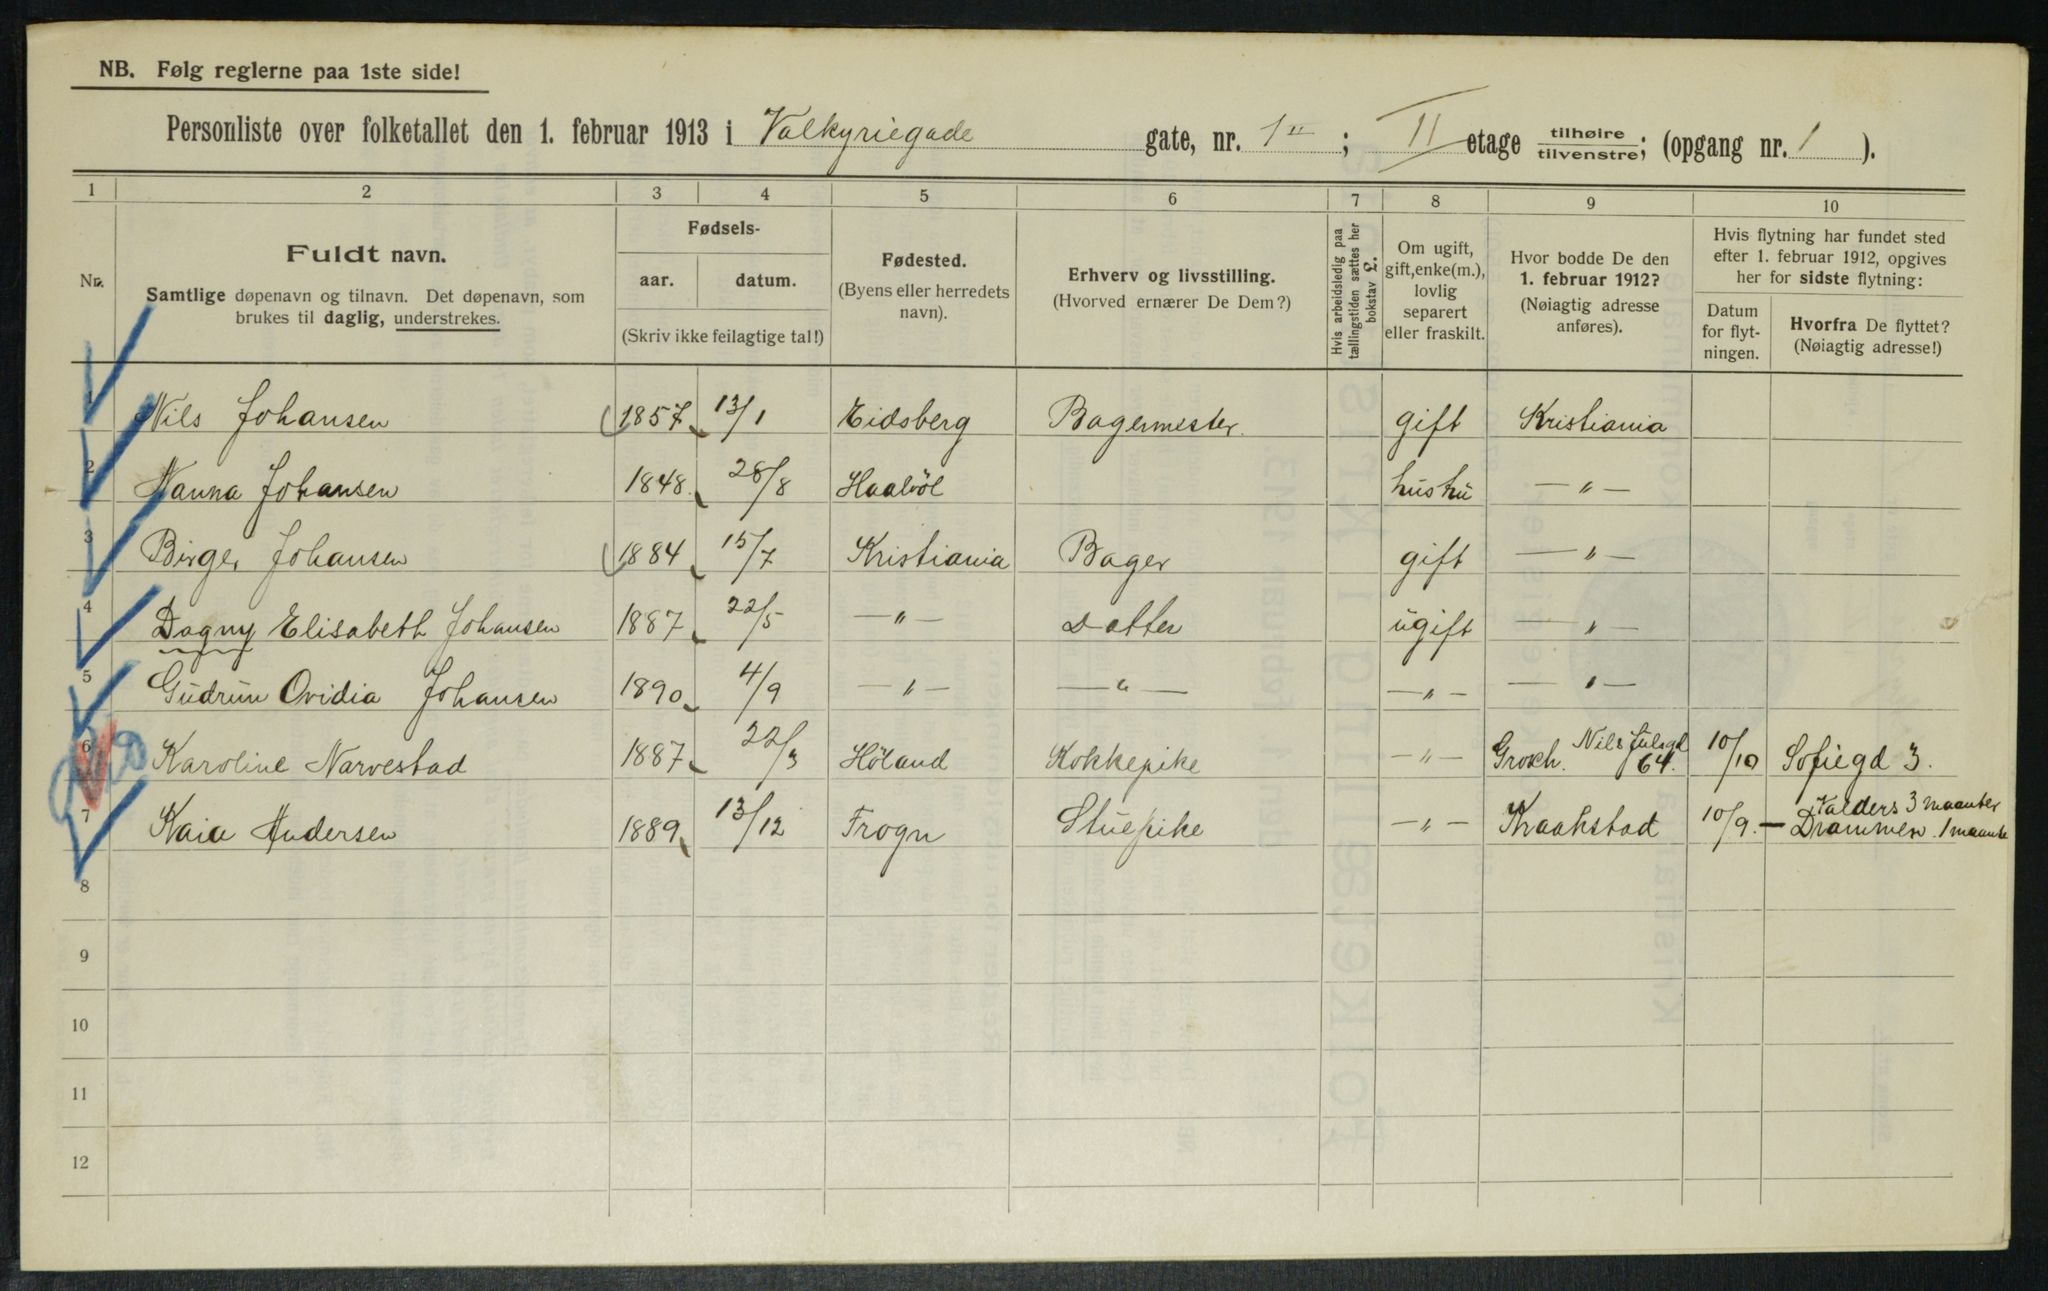 NB. Følg reglerne paa 1ste side!
Personliste over folketallet den 1. februar 1913 i Valkyriegade gate, nr. 1 II; II etage tilhøire tilvenstre; (opgang nr. 1).
1 2 3 4 5 6 7 8 9 10
Nr.
Fuldt navn.
Samtlige døpenavn og tilnavn. Det døpenavn, som
brukes til daglig, understrekes.
Fødsels-
aar. datum.
(Skriv ikke feilagtige tal!)
Fødested.
(Byens eller herredets
navn).
Erhverv og livsstilling.
(Hvorved ernærer De Dem?)
Hvis arbeidsledig paa
tællingstiden sættes her
bokstav L.
Om ugift,
gift, enke(m.),
lovlig
separert
eller fraskilt.
Hvor bodde De den
1. februar 1912?
(Nøiagtig adresse
anføres).
Hvis flytning har fundet sted
efter 1. februar 1912, opgives
her for sidste flytning:
Datum
for flyt-
ningen.
Hvorfra De flyttet?
(Nøiagtig adresse!)
1 Nils Johansen 1857 13/1 Eidsberg Bagermester. gift Kristiania
2 Nanna Johansen 1848 28/8 Haabøl hustru — " —
3 Birger Johansen 1884 15/7 Kristiania Bager gift — " —
4 Dagny Elisabeth Johansen 1887 22/5 — " — Datter ugift — " —
5 Gudrun Ovidia Johansen 1890 4/9 — " — — " — — " — — " —
6 Karoline Narvestad 1887 22/3 Høland Kokkepike — " — Grosch. Nils Julsgd 64. 10/10 Sofiegd 3.
7 Kaia Andersen 1889 13/12 Frogn Stuepike — " — Kraakstad 10/9. — Valders 3 maaneter
Drammen 1 maanet
8
9
10
11
12